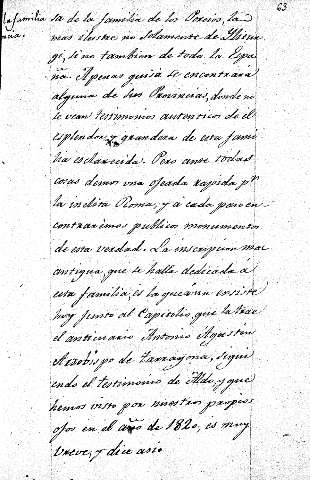 63
la familia
sa de la familia de los Porcios, la
mas ilustre no solamente de Ilitur-
gi, si no tambien de toda la Espa-
ña. Apenas quisá se encontrará
alguna de sus Provincias, donde no
se vean testimonios autenticos de el
esplendor, y grandeza de esta fami-
lia esclarecida. Pero ante todas
cosas demos una ojeada rapida pr.
la inclita Roma, y á cada paso en-
contraremos publicos monumentos
de esta verdad. La inscripcion mas
antigua que se halla dedicada a
esta familia, es la que aun existe
hoy junto al Capitolio, que la trae
el anticuario Antonio Agustin
Arzobispo de Tarragona, sigui-
endo el testimonio de Aldo, y que
hemos visto por nuestros propios
ojos en el año de 1820, es muy
breve, y dice asi: